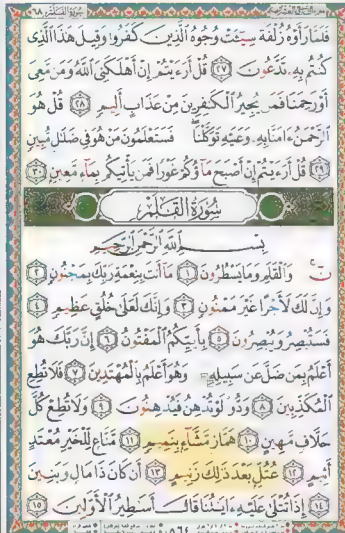 سورة القلم ٦٨
فَلَمَّا رَأَوْهُ زُلْفَةً سِيٓـَٔتْ وُجُوهُ ٱلَّذِينَ كَفَرُوا۟ وَقِيلَ هَٰذَا ٱلَّذِى
كُنتُم بِهِۦ تَدَّعُونَ ٢٧ قُلْ أَرَءَيْتُمْ إِنْ أَهْلَكَنِىَ ٱللَّهُ وَمَن مَّعِىَ
أَوْ رَحِمَنَا فَمَن يُجِيرُ ٱلْكَٰفِرِينَ مِنْ عَذَابٍ أَلِيمٍ ٢٨ قُلْ هُوَ
ٱلرَّحْمَٰنُ ءَامَنَّا بِهِۦ وَعَلَيْهِ تَوَكَّلْنَا فَسَتَعْلَمُونَ مَنْ هُوَ فِى ضَلَٰلٍ مُّبِينٍ
٢٩ قُلْ أَرَءَيْتُمْ إِنْ أَصْبَحَ مَآؤُكُمْ غَوْرًا فَمَن يَأْتِيكُم بِمَآءٍ مَّعِينٍ ٣٠
سُورَةُ القَلَمِ
بِسْمِ ٱللَّهِ ٱلرَّحْمَٰنِ ٱلرَّحِيمِ
نٓ وَٱلْقَلَمِ وَمَا يَسْطُرُونَ ١ مَآ أَنتَ بِنِعْمَةِ رَبِّكَ بِمَجْنُونٍ ٢
وَإِنَّ لَكَ لَأَجْرًا غَيْرَ مَمْنُونٍ ٣ وَإِنَّكَ لَعَلَىٰ خُلُقٍ عَظِيمٍ ٤
فَسَتُبْصِرُ وَيُبْصِرُونَ ٥ بِأَييِّكُمُ ٱلْمَفْتُونُ ٦ إِنَّ رَبَّكَ هُوَ
أَعْلَمُ بِمَن ضَلَّ عَن سَبِيلِهِۦ وَهُوَ أَعْلَمُ بِٱلْمُهْتَدِينَ ٧ فَلَا تُطِعِ
ٱلْمُكَذِّبِينَ ٨ وَدُّوا۟ لَوْ تُدْهِنُ فَيُدْهِنُونَ ٩ وَلَا تُطِعْ كُلَّ
حَلَّافٍ مَّهِينٍ ١٠ هَمَّازٍ مَّشَّآءٍۭ بِنَمِيمٍ ١١ مَّنَّاعٍ لِّلْخَيْرِ مُعْتَدٍ
أَثِيمٍ ١٢ عُتُلٍّۭ بَعْدَ ذَٰلِكَ زَنِيمٍ ١٣ أَن كَانَ ذَا مَالٍ وَبَنِينَ
١٤ إِذَا تُتْلَىٰ عَلَيْهِ ءَايَٰتُنَا قَالَ أَسَٰطِيرُ ٱلْأَوَّلِينَ ١٥
٥٦٤